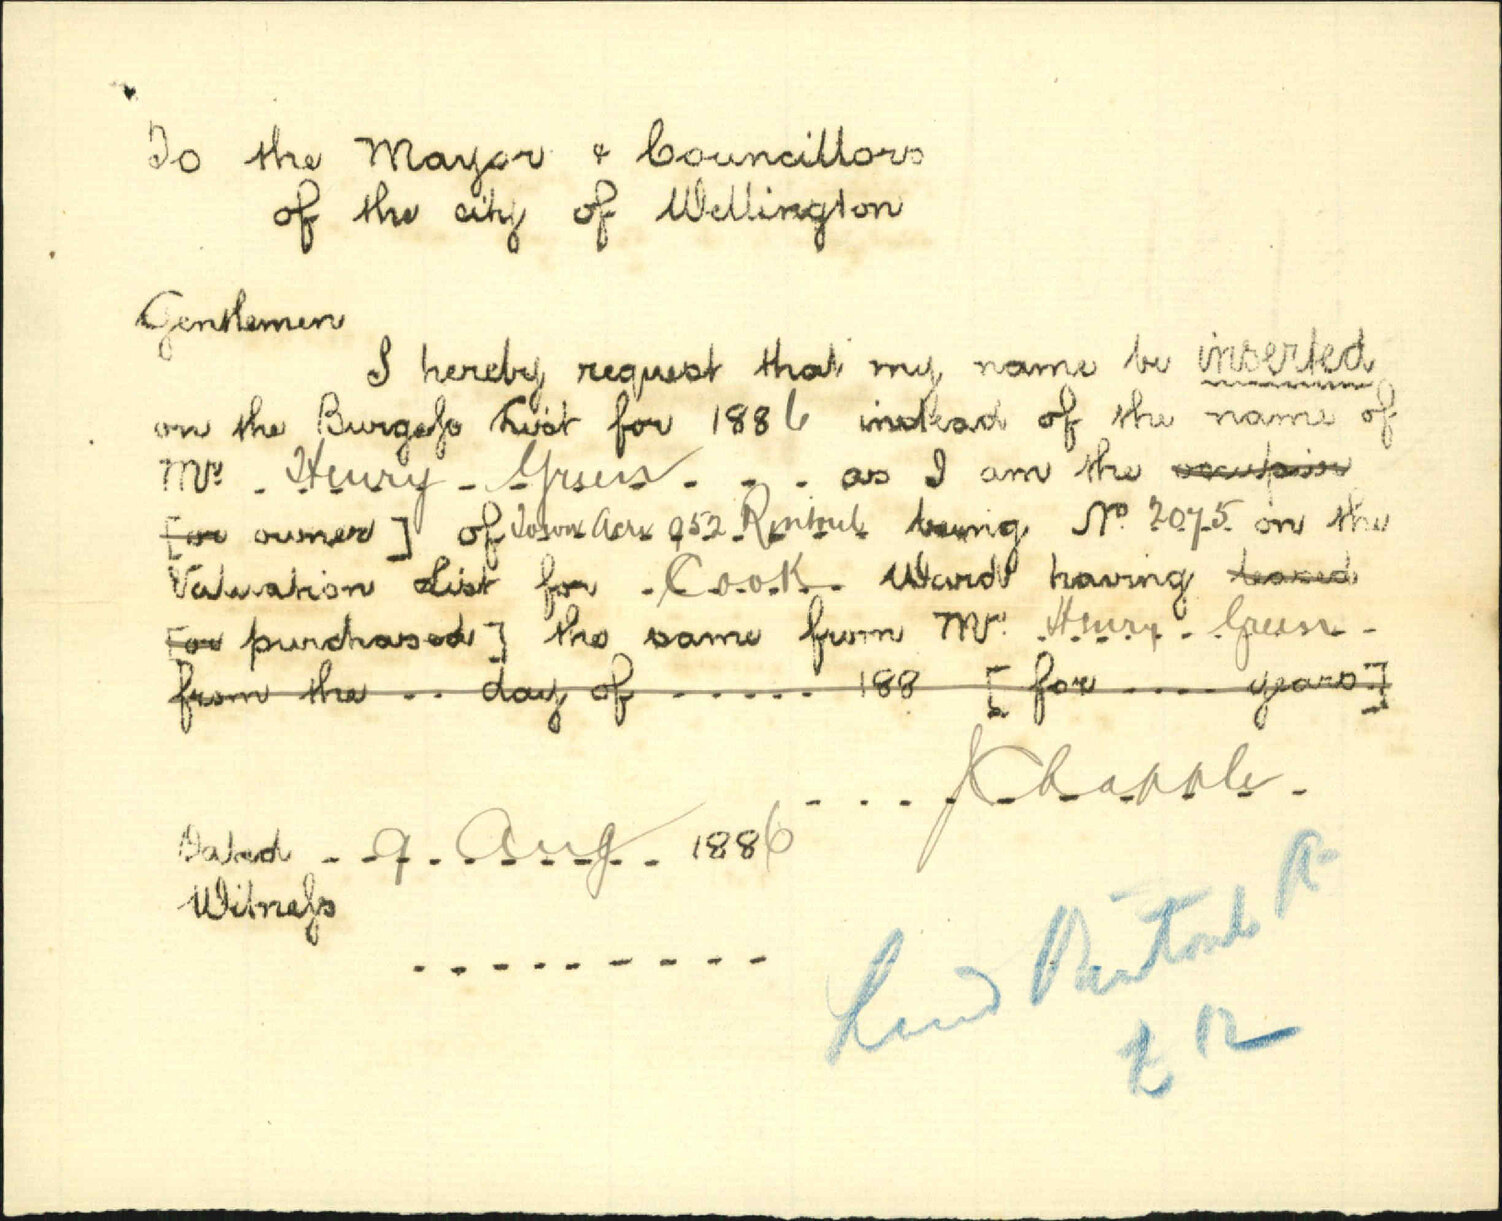 To the Mayor & Councillors
of the city of Wellington
Gentlemen
I hereby request that my name be inserted
on the Burgess List for 1886 instead of the name of
Mr. Henry Green as I am the occupier
[or owner] of Town Acre 952 Rintoul being No. 2075 on the
Valuation List for Cook Ward having leased
[or purchased] the same from Mr. Henry Green
from the .. day of ...... 188 [for .... years]
J Chapple
Dated 9 Aug 1886
Witness
Land Rintoul St
£12